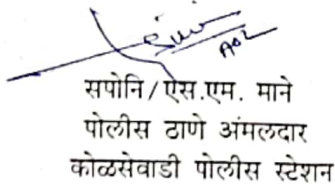 सपोनि/एस.एम. माने
पोलीस ठाणे अंमलदार
कोळसेवाडी पोलीस स्टेशन